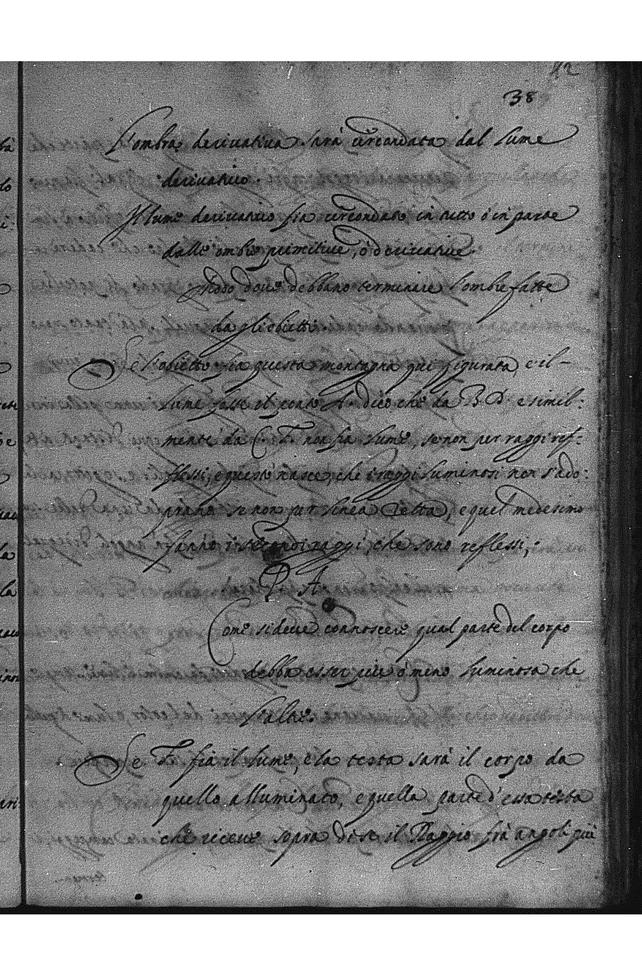 42
38
L'ombra derivativa sarà circondata dal lume
derivativo.
Il lume derivativo fia circondato in tutto o in parte
dalle ombre primitive, o derivative.
dove debbano terminare l'ombre fatte
da gli obietti.
Se l'obietto fia questa montagna qui figurata e il-
lume fusse il A. dico che da B. D. e simil:
mente da C. F. non fia lume, se non per raggi ref-
flessi, e questo nasce, che i raggi luminosi non s'ado:
prano se non per linea retta, e quel medesimo
fanno i secondi raggi, che sono reflessi,:
P. A.
Come si deve connoscere qual parte del corpo
debba esser più o meno luminosa che
l'altre.
Se F. fia il lume, e la testa sarà il corpo da
quello alluminato, e quella parte d'essa testa
che riceve sopra di se il Raggio frà angoli più